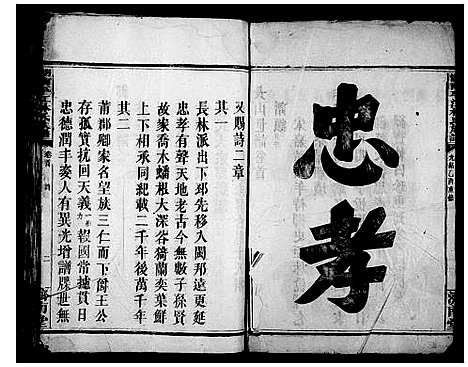 忠孝
又賜詩二章
其一
長林派出下邳先移入閩邦遠更延
忠孝有聲天地老古今無數子孫賢
故家喬木蟠根大深谷猗蘭奕葉鮮
上下相承同紀載二千年後萬千年
其二
莆郡鄉家名望族三仁而下爵王公
存孤實抗回天義報國常據貫日
忠德潤丰姿人有異光增譜牒世無